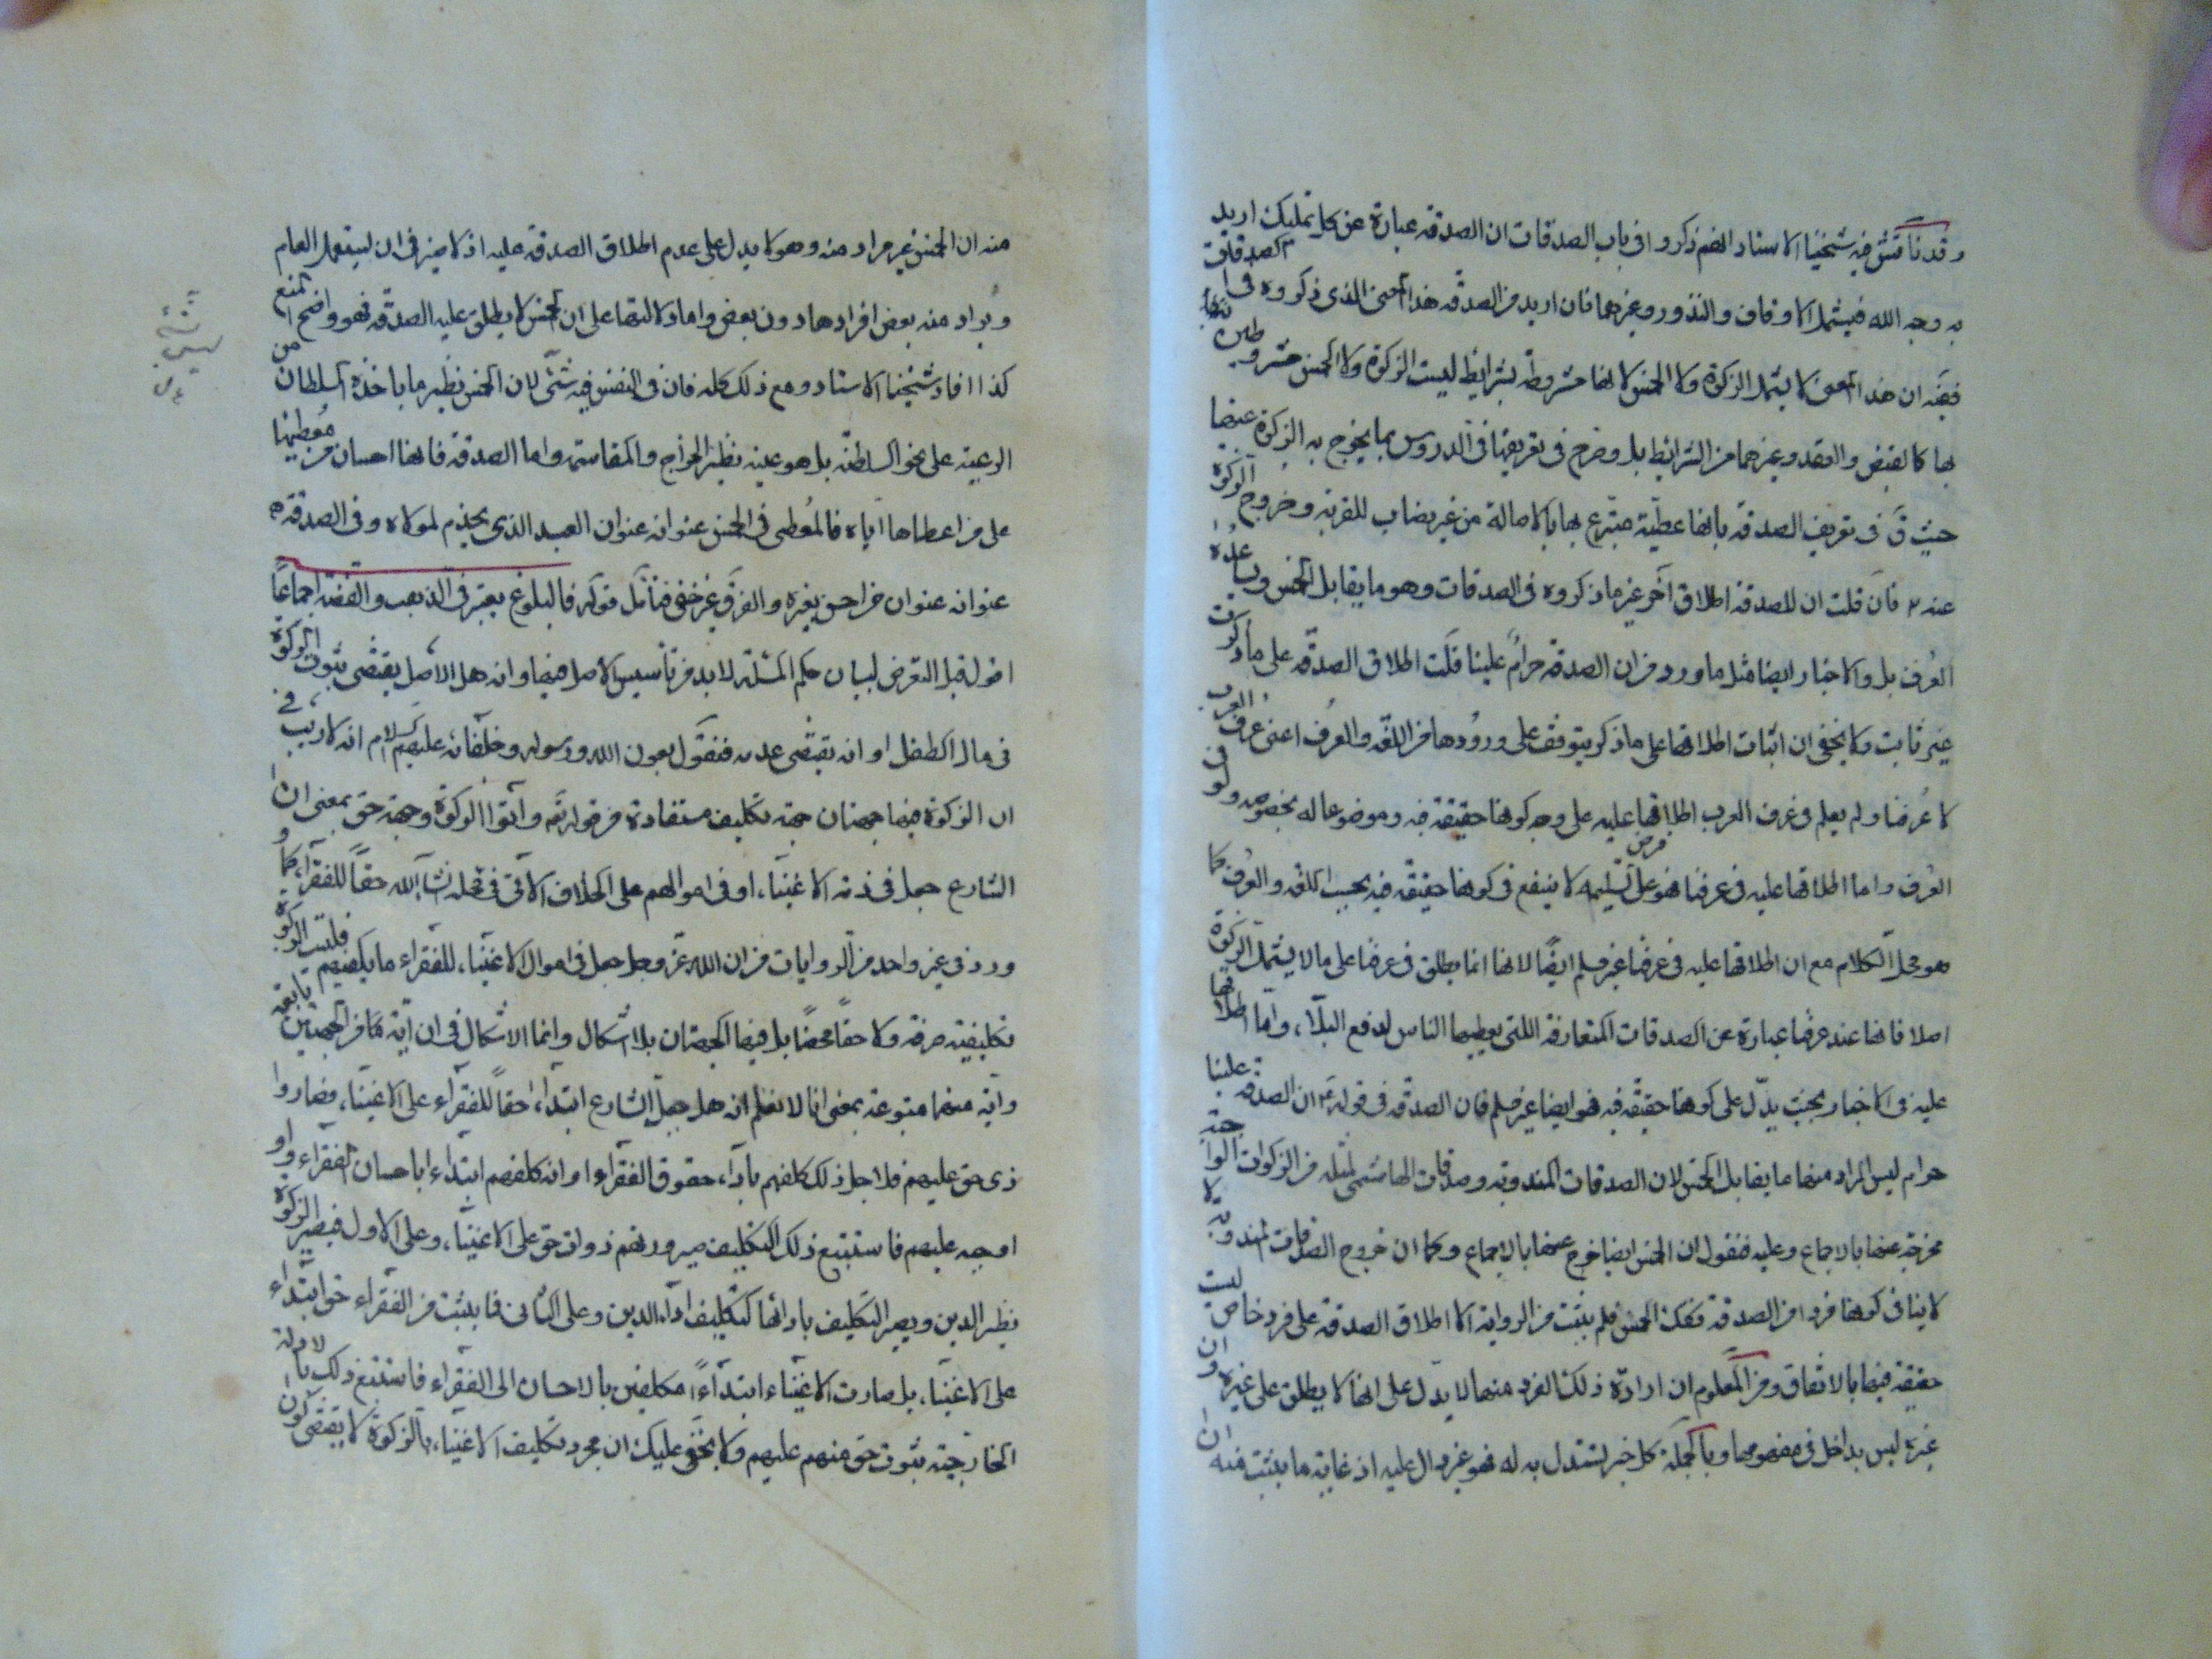 وقد ناقش فيه شيخنا الاستاد انهم ذكروا فى باب الصدقات ان الصدقة عبارة عن كل تمليك اريد
به وجه الله فيشمل الاوقاف والنذور وغيرهما فان اريد من الصدقة هذا المعنى الذى ذكروه فى الصدقات
ففيه ان هذا المعنى لا يشمل الزكوة ولا الخمس لانها مشروطة بشرايط ليست الزكوة ولا الخمس مشروطين
بها كالقبض والعقد وغيرهما من الشرائط بل وصرح فى تعريفها فى الدروس بما يخرج به الزكوة عنها
حيث ق فى تعريف الصدقة بانها عطية متبرع بها بالاصالة من غير نصاب للقربة وخروج الزكوة
عنه فان قلت ان للصدقة اطلاق آخر غير ما ذكروه فى الصدقات وهو ما يقابل الخمس ويساعده
العرف بل والاخبار ايضا مثل ما ورد من ان الصدقة حرام علينا قلت اطلاق الصدقة على ما ذكرت
غير ثابت ولا يخفى ان اثبات اطلاقها على ما ذكر يتوقف على ورودها من اللغة والعرف اعنى عرف العرب
لا عرفنا ولم يعلم فى عرف العرب اطلاقها عليه على وجه كونها حقيقة فيه وموضوعا له بخصوصه ولو فى
العرف واما اطلاقها عليه فى عرفنا فهو على فرض تسليمه لا ينفع فى كونها حقيقة فيه بحسب اللغة والعرف كما
هو محل الكلام مع ان اطلاقها عليه فى عرفنا غير مسلم ايضا لانها انما يطلق فى عرفنا على ما لا يشمل الزكوة
اصلا فانها عند عرفنا عبارة عن الصدقات المتعارفة اللتى يعطيها الناس لدفع البلاء، واما اطلاقها
عليه فى الاخبار بحيث يدل على كونها حقيقة فيه فهو ايضا غير مسلم فان الصدقة فى قوله ان الصدقة علينا
حرام ليس المراد منها ما يقابل الخمس لان الصدقات المندوبة وصدقات الهاشمى لمثله من الزكوات الواجبة
مخرجة عنها بالاجماع وعليه فنقول ان الخمس ايضا خرج عنها بالاجماع وكما ان خروج الصدقات المندوبة لا
لا ينافى كونها فردا من الصدقة فكك الخمس فلم يثبت من الرواية الا اطلاق الصدقة على فرد خاص ليست
حقيقة فيها بالاتفاق ومن المعلوم ان ارادة ذلك الفرد منها لا يدل على انها لا يطلق على غيره وان
غيره ليس بداخل فى مفهومها وبالجملة كل خبر يستدل به له فهو غير دال عليه اذ غاية ما يثبت منه ان
منه ان الخمس غير مراد منه وهو لا يدل على عدم اطلاق الصدقة عليه اذ لا ضير فى ان يستعمل العام
ويراد منه بعض افرادها دون بعض واما دلالتها على ان الخمس لا يطلق عليه الصدقة فهو واضح المنع
كذا افاد شيخنا الاستاد ومع ذلك كله فان فى النفس فيه شئ لان الخمس نظير ما ياخذه السلطان من
الرعية على نحو السلطنة بل هو عينه نظير الخراج والمقاسمة واما الصدقة فانها احسان من معطيها
على من اعطاها اياه فالمعطى فى الخمس عنوانه عنوان العبد الذى يخدم لمولاه وفى الصدقة
عنوانه عنوان من احسن بغيره والفرق غير خفى فتأمل قوله فالبلوغ يعتبر فى الذهب والفضة اجماعا
اقول قبل التعرض لبيان حكم المسئلة لا بد من تأسيس الاصل فيها وانه هل الاصل يقتضى ثبوت الزكوة
فى مال الطفل او انه يقتضى عدمه فنقول بعون الله ورسوله وخلفائه عليهم السلام انه لا ريب فى
ان الزكوة فيها جهتان جهة تكليف مستفادة من قوله تعـ وآتوا الزكوة وجهة حق بمعنى ان
الشارع جعل فى ذمة الاغنياء، او فى اموالهم على الخلاف الآتى فى محله انشاءالله حقا للفقراء، كما
ورد فى غير واحد من الروايات من ان الله عز وجل جعل فى اموال الاغنياء، للفقراء ما يكفيهم فليست الزكوة
تكليفية صرفة ولا حقا محضا بل فيها الجهتان بلا اشكال وانما الاشكال فى ان اية منهما من الجهتين تابعة
واية منهما متبوعة بمعنى انا لا نعلم انه هل جعل الشارع ابتداء، حقا للفقراء على الاغنياء، فصاروا
ذى حق عليهم فلاجل ذلك كلفهم باداء، حقوق الفقراء او انه كلفهم ابتداء باحسان الفقراء و
اوجبه عليهم فاستتبع ذلك التكليف صيرورتهم ذوات حق على الاغنياء، وعلى الاول فيصير الزكوة
نظير الدين ويصير التكليف بادائها كتكليف اداء الدين وعلى الثانى فما يثبت من الفقراء حق ابتداء
على الاغنياء، بل صارت الاغنياء ابتداء مكلفين بالاحسان الى الفقراء فاستتبع ذلك بالادلة
الخارجية ثبوت حق منهم عليهم ولا يخفى عليك ان مجرد تكليف الاغنياء، بالزكوة لا يقتضى كون